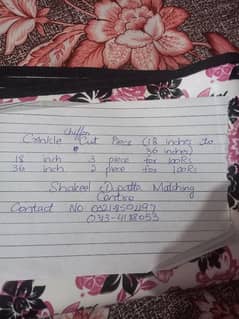 Chiffon
Crinkle Cut Piece (18 inches to
36 inches)
18 inch 3 piece for 100Rs
36 inch 2 piece for 100Rs
Shakeel Dupatta Matching
Centre
Contact NO